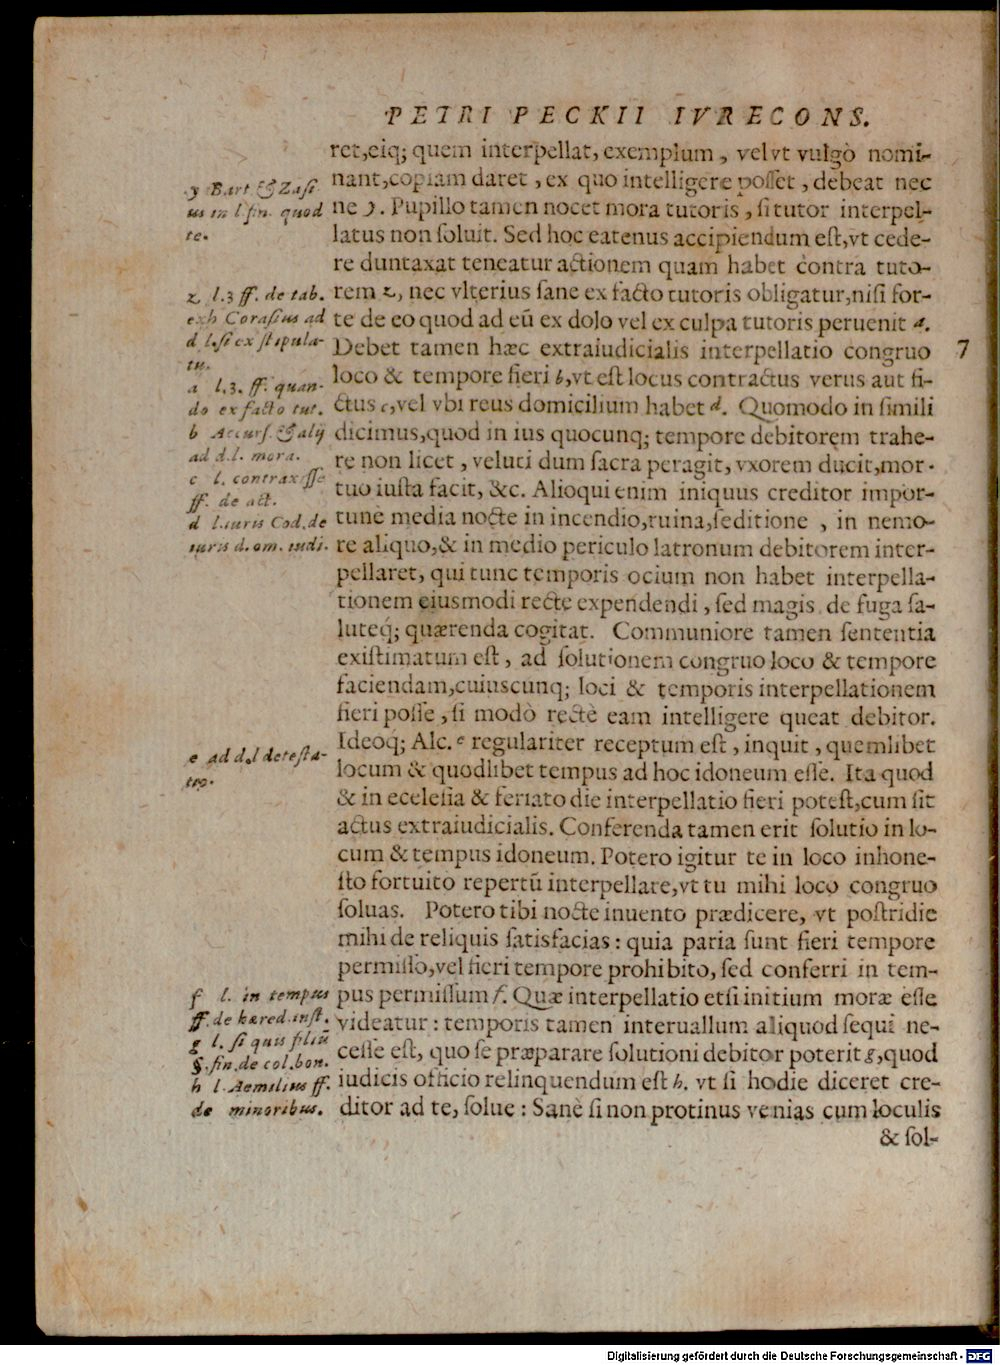 PETRI PECKII IVRECONS.
ret,eiq; quem interpellat, exemplum, velvt vulgò nomi-
nant,copiam daret, ex quo intelligere posset, debeat nec
ne y. Pupillo tamen nocet mora tutoris, si tutor interpel-
latus non soluit. Sed hoc eatenus accipiendum est,vt cede-
re duntaxat teneatur actionem quam habet contra tuto-
rem z, nec vlterius sane ex facto tutoris obligatur,nisi for-
te de eo quod ad eũ ex dolo vel ex culpa tutoris peruenit a.
Debet tamen hæc extraiudicialis interpellatio congruo
loco & tempore fieri b,vt est locus contractus verus aut fi-
ctus c,vel vbi reus domicilium habet d. Quomodo in simili
dicimus,quod in ius quocunq; tempore debitorem trahe-
re non licet, veluti dum sacra peragit, vxorem ducit,mor-
tuo iusta facit, &c. Alioqui enim iniquus creditor impor-
tune media nocte in incendio,ruina,seditione, in nemo-
re aliquo,& in medio periculo latronum debitorem inter-
pellaret, qui tunc temporis ocium non habet interpella-
tionem eiusmodi recte expendendi, sed magis de fuga sa-
luteq́; quærenda cogitat. Communiore tamen sententia
existimatum est, ad solutionem congruo loco & tempore
faciendam,cuiuscunq; loci & temporis interpellationem
fieri posse, si modò rectè eam intelligere queat debitor.
Ideoq; Alc. e regulariter receptum est, inquit, quemlibet
locum & quodlibet tempus ad hoc idoneum esse. Ita quod
& in ecclesia & feriato die interpellatio fieri potest,cum sit
actus extraiudicialis. Conferenda tamen erit solutio in lo-
cum & tempus idoneum. Potero igitur te in loco inhone-
sto fortuito repertũ interpellare,vt tu mihi loco congruo
soluas. Potero tibi nocte inuento prædicere, vt postridie
mihi de reliquis satisfacias: quia paria sunt fieri tempore
permisso,vel fieri tempore prohibito, sed conferri in tem-
pus permissum f. Quæ interpellatio etsi initium moræ esse
videatur: temporis tamen interuallum aliquod sequi ne-
cesse est, quo se præparare solutioni debitor poterit g,quod
iudicis officio relinquendum est h. vt si hodie diceret cre-
ditor ad te, solue: Sanè si non protinus venias cum loculis
& sol-
7
y Bart. & Zasi-
us in l. fin. quod
te.
z l.3 ff. de tab.
exh Corasius ad
d l.si ex stipula-
tu.
a l.3. ff. quan-
do ex facto tut.
b Accurs. & alij
ad d.l. mora.
c l. contraxisse
ff. de act.
d l.iuris Cod. de
iuris d. om. iudi.
e ad d.l detesta-
tio.
f l. in tempus
ff. de hæred.inst.
g l. si quis filiũ
§. fin. de col. bon.
h l. Aemilius ff.
de minoribus.
Digitalisierung gefördert durch die Deutsche Forschungsgemeinschaft - DFG